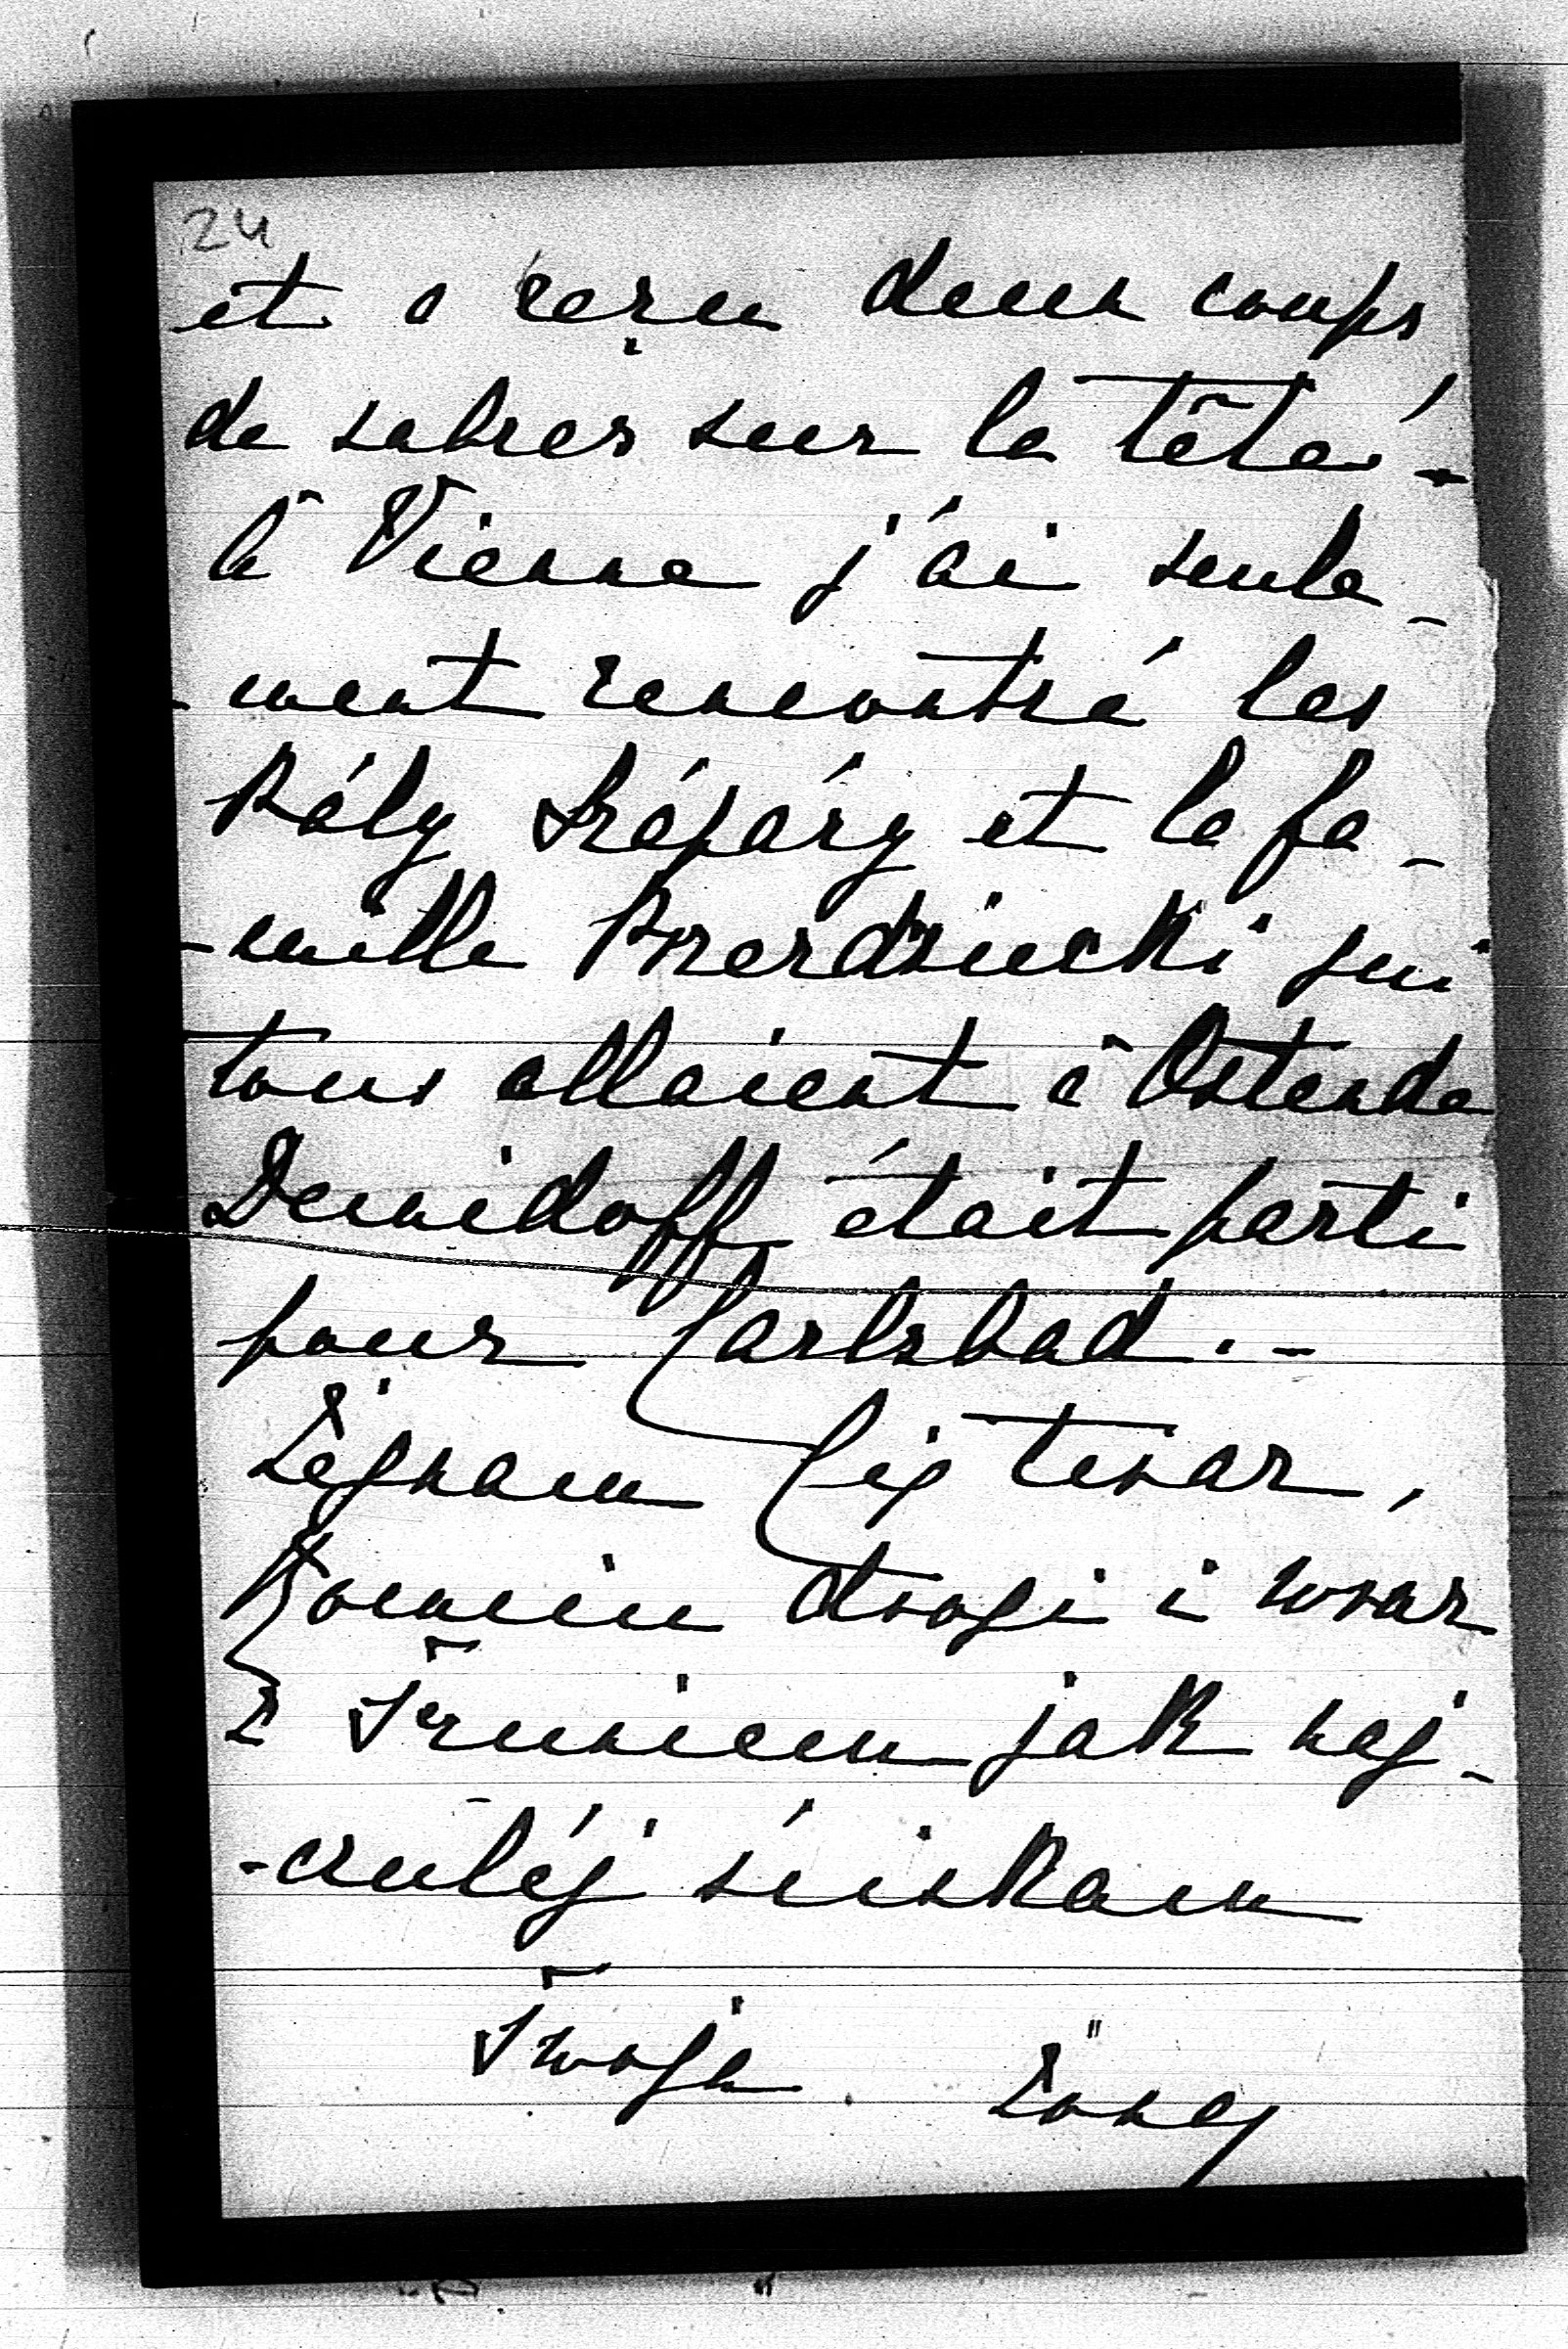 24
et a reçu deux coups
de sabres sur la tête! -
à Vienne j'ai seule-
-ment rencontré les
Pály Szápáry et la fa-
-mille Przezdziecki qui
tous allaient à Ostende
Demidoff était parti
pour Carlsbad. -
Żegnam Cię teraz,
Komciu drogi i wraz
z Truniem jak naj-
-czuléj ściskam
Twoja